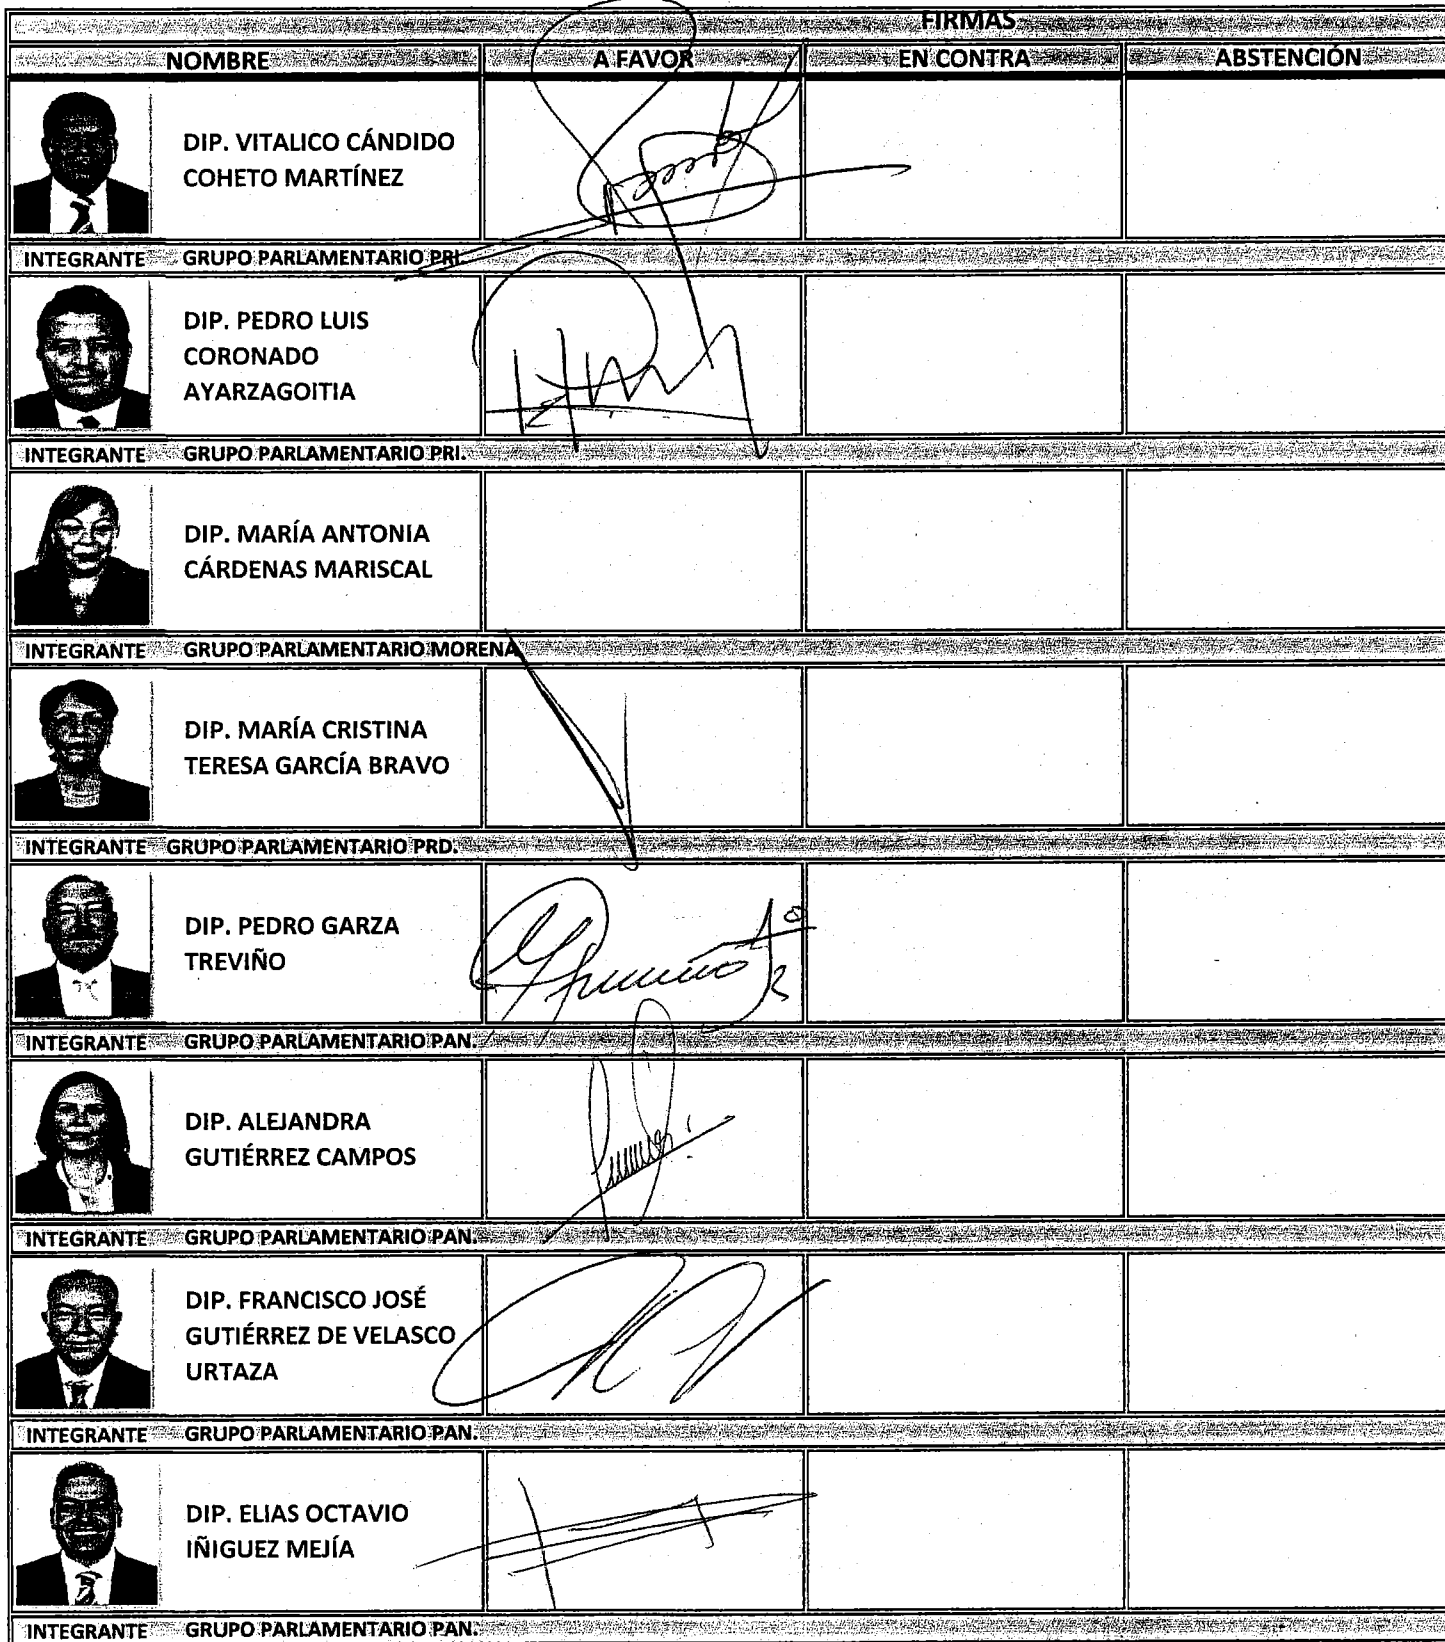 FIRMAS
NOMBRE A FAVOR EN CONTRA ABSTENCIÓN
DIP. VITALICO CÁNDIDO
COHETO MARTÍNEZ
INTEGRANTE GRUPO PARLAMENTARIO PRI.
DIP. PEDRO LUIS
CORONADO
AYARZAGOITIA
INTEGRANTE GRUPO PARLAMENTARIO PRI.
DIP. MARÍA ANTONIA
CÁRDENAS MARISCAL
INTEGRANTE GRUPO PARLAMENTARIO MORENA
DIP. MARÍA CRISTINA
TERESA GARCÍA BRAVO
INTEGRANTE GRUPO PARLAMENTARIO PRD.
DIP. PEDRO GARZA
TREVIÑO
INTEGRANTE GRUPO PARLAMENTARIO PAN.
DIP. ALEJANDRA
GUTIÉRREZ CAMPOS
INTEGRANTE GRUPO PARLAMENTARIO PAN.
DIP. FRANCISCO JOSÉ
GUTIÉRREZ DE VELASCO
URTAZA
INTEGRANTE GRUPO PARLAMENTARIO PAN.
DIP. ELIAS OCTAVIO
IÑIGUEZ MEJÍA
INTEGRANTE GRUPO PARLAMENTARIO PAN.